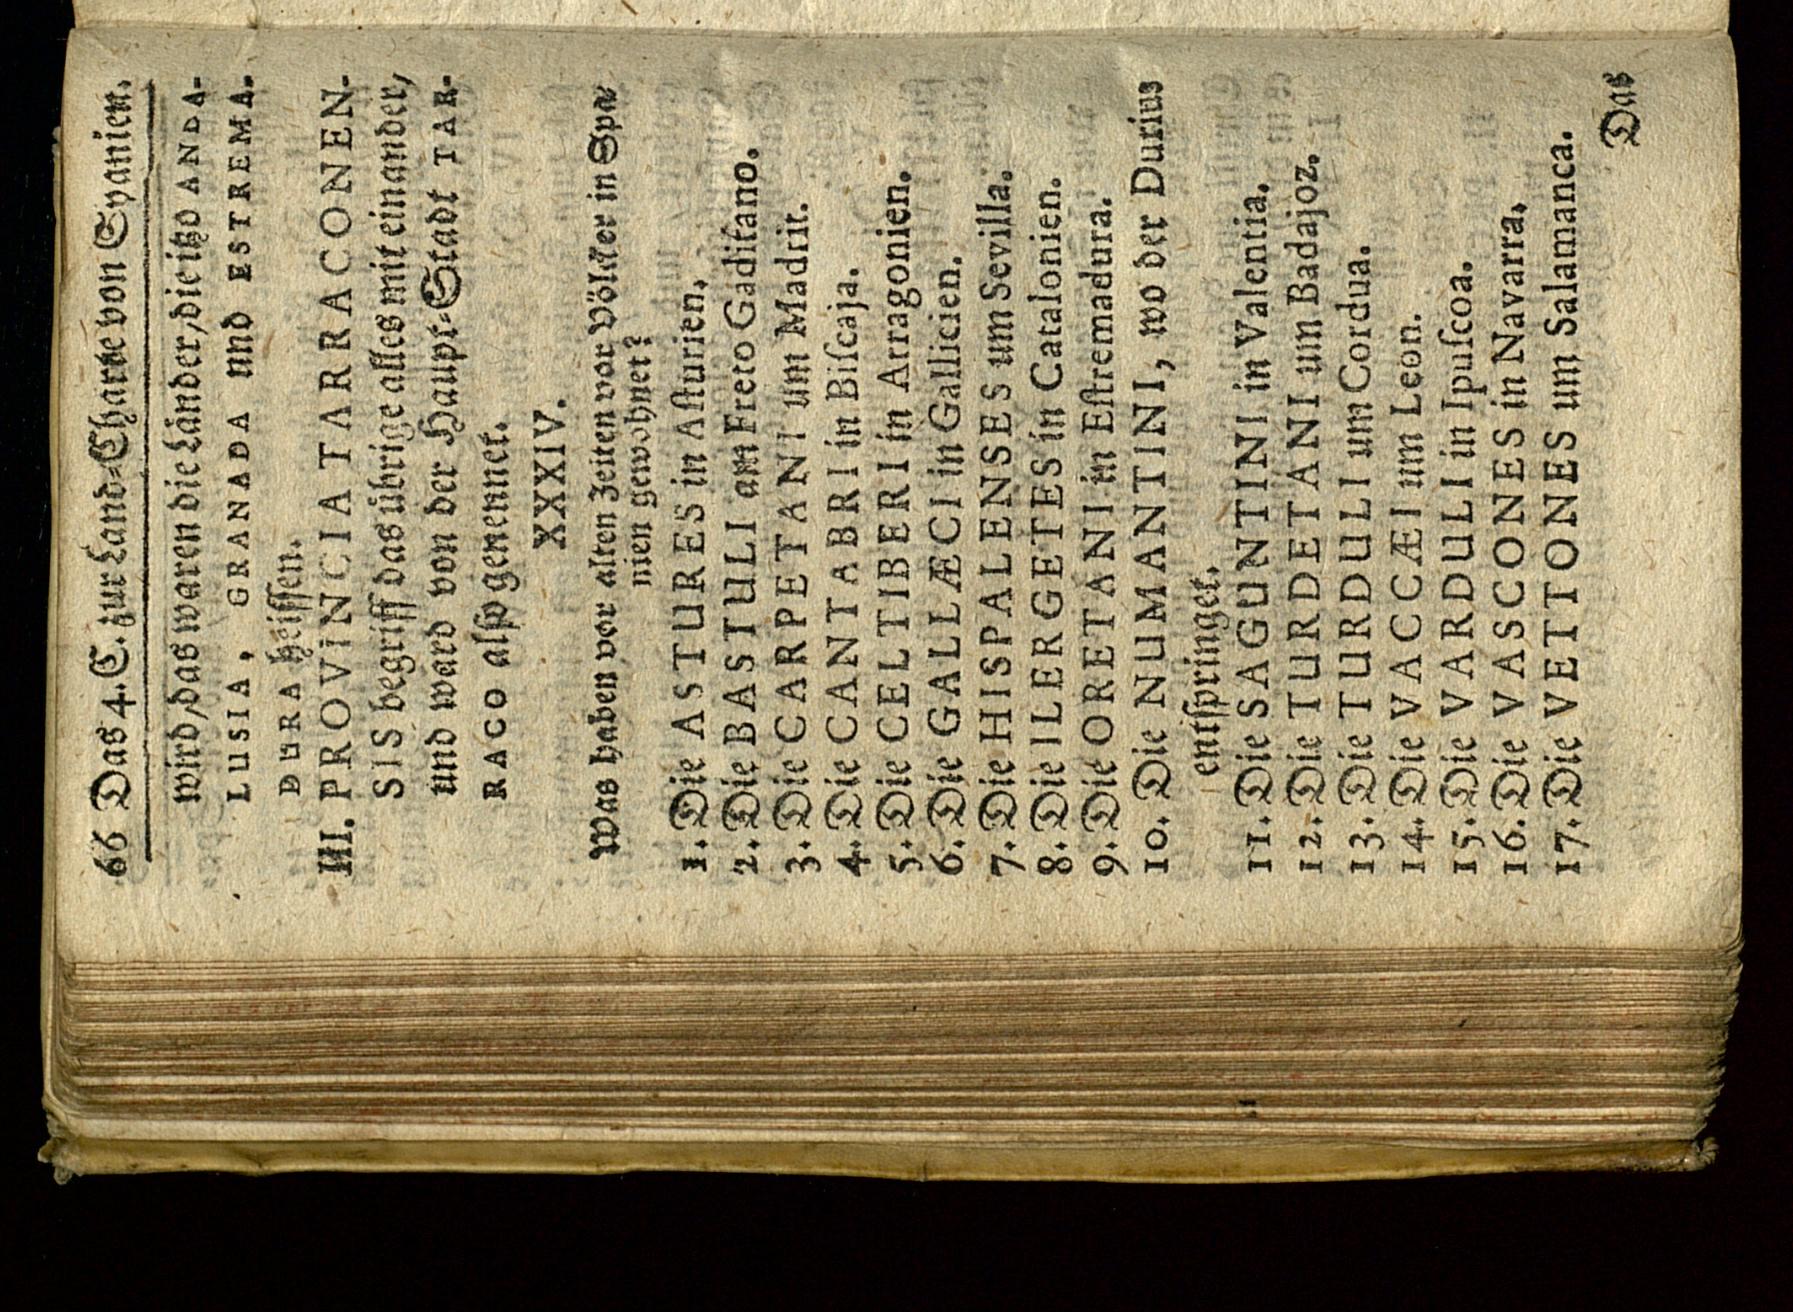 66 Das 4. C. zur Land-Charte von Spanien.
wird, das waren die Länder, die itzo ANDA-
LUSIA, GRANADA und ESTREMA-
DURA heissen.
III. PROVINCIA TARRACONEN-
SIS begriff das übrige alles mit einander,
und ward von der Haupt-Stadt TAR-
RACO also genennet.
XXXIV.
Was haben vor alten Zeiten vor Völcker in Spa-
nien gewohnet?
1. Die ASTURES in Aſturien.
2. Die BASTULI am Freto Gaditano.
3. Die CARPETANI um Madrit.
4. Die CANTABRI in Biſcaja.
5. Die CELTIBERI in Arragonien.
6. Die GALLÆCI in Gallicien.
7. Die HISPALENSES um Sevilla.
8. Die ILERGETES in Catalonien.
9. Die ORETANI in Eſtremadura.
10. Die NUMANTINI, wo der Durius
entſpringet.
11. Die SAGUNTINI in Valentia.
12. Die TURDETANI um Badajoz.
13. Die TURDULI um Cordua.
14. Die VACCÆI um Leon.
15. Die VARDULI in Ipuſcoa.
16. Die VASCONES in Navarra.
17. Die VETTONES um Salamanca.
Das